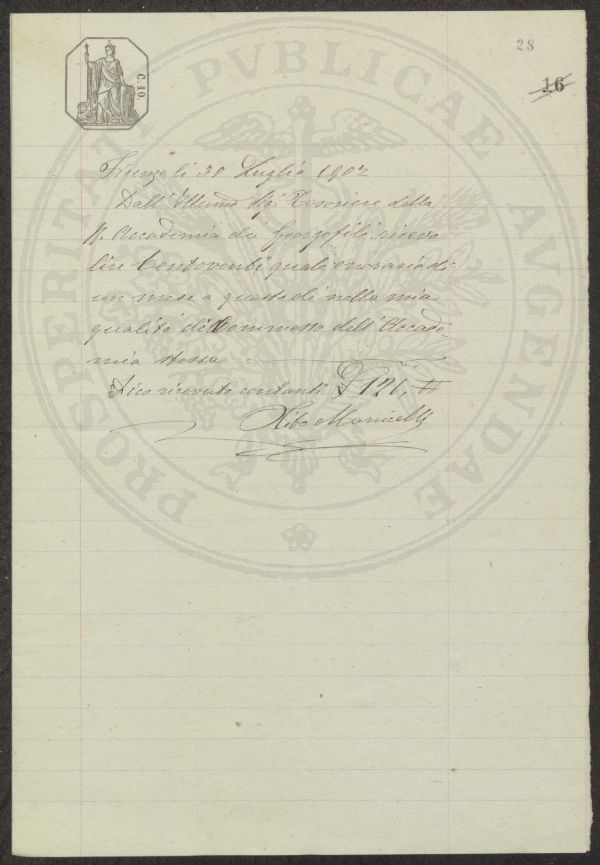 28
16
C. 10
PROSPERITATI PVBLICAE AVGENDAE
Firenze li 30 Luglio 1902
Dall' Illmo Sig. Tesoriere della
R. Accademia dei Georgofili ricevo
lire Centoventi quale onorario di
un mese a questo dì nella mia
qualità di Commesso dell' Accade-
mia stessa
Dico ricevute contanti £ 120,